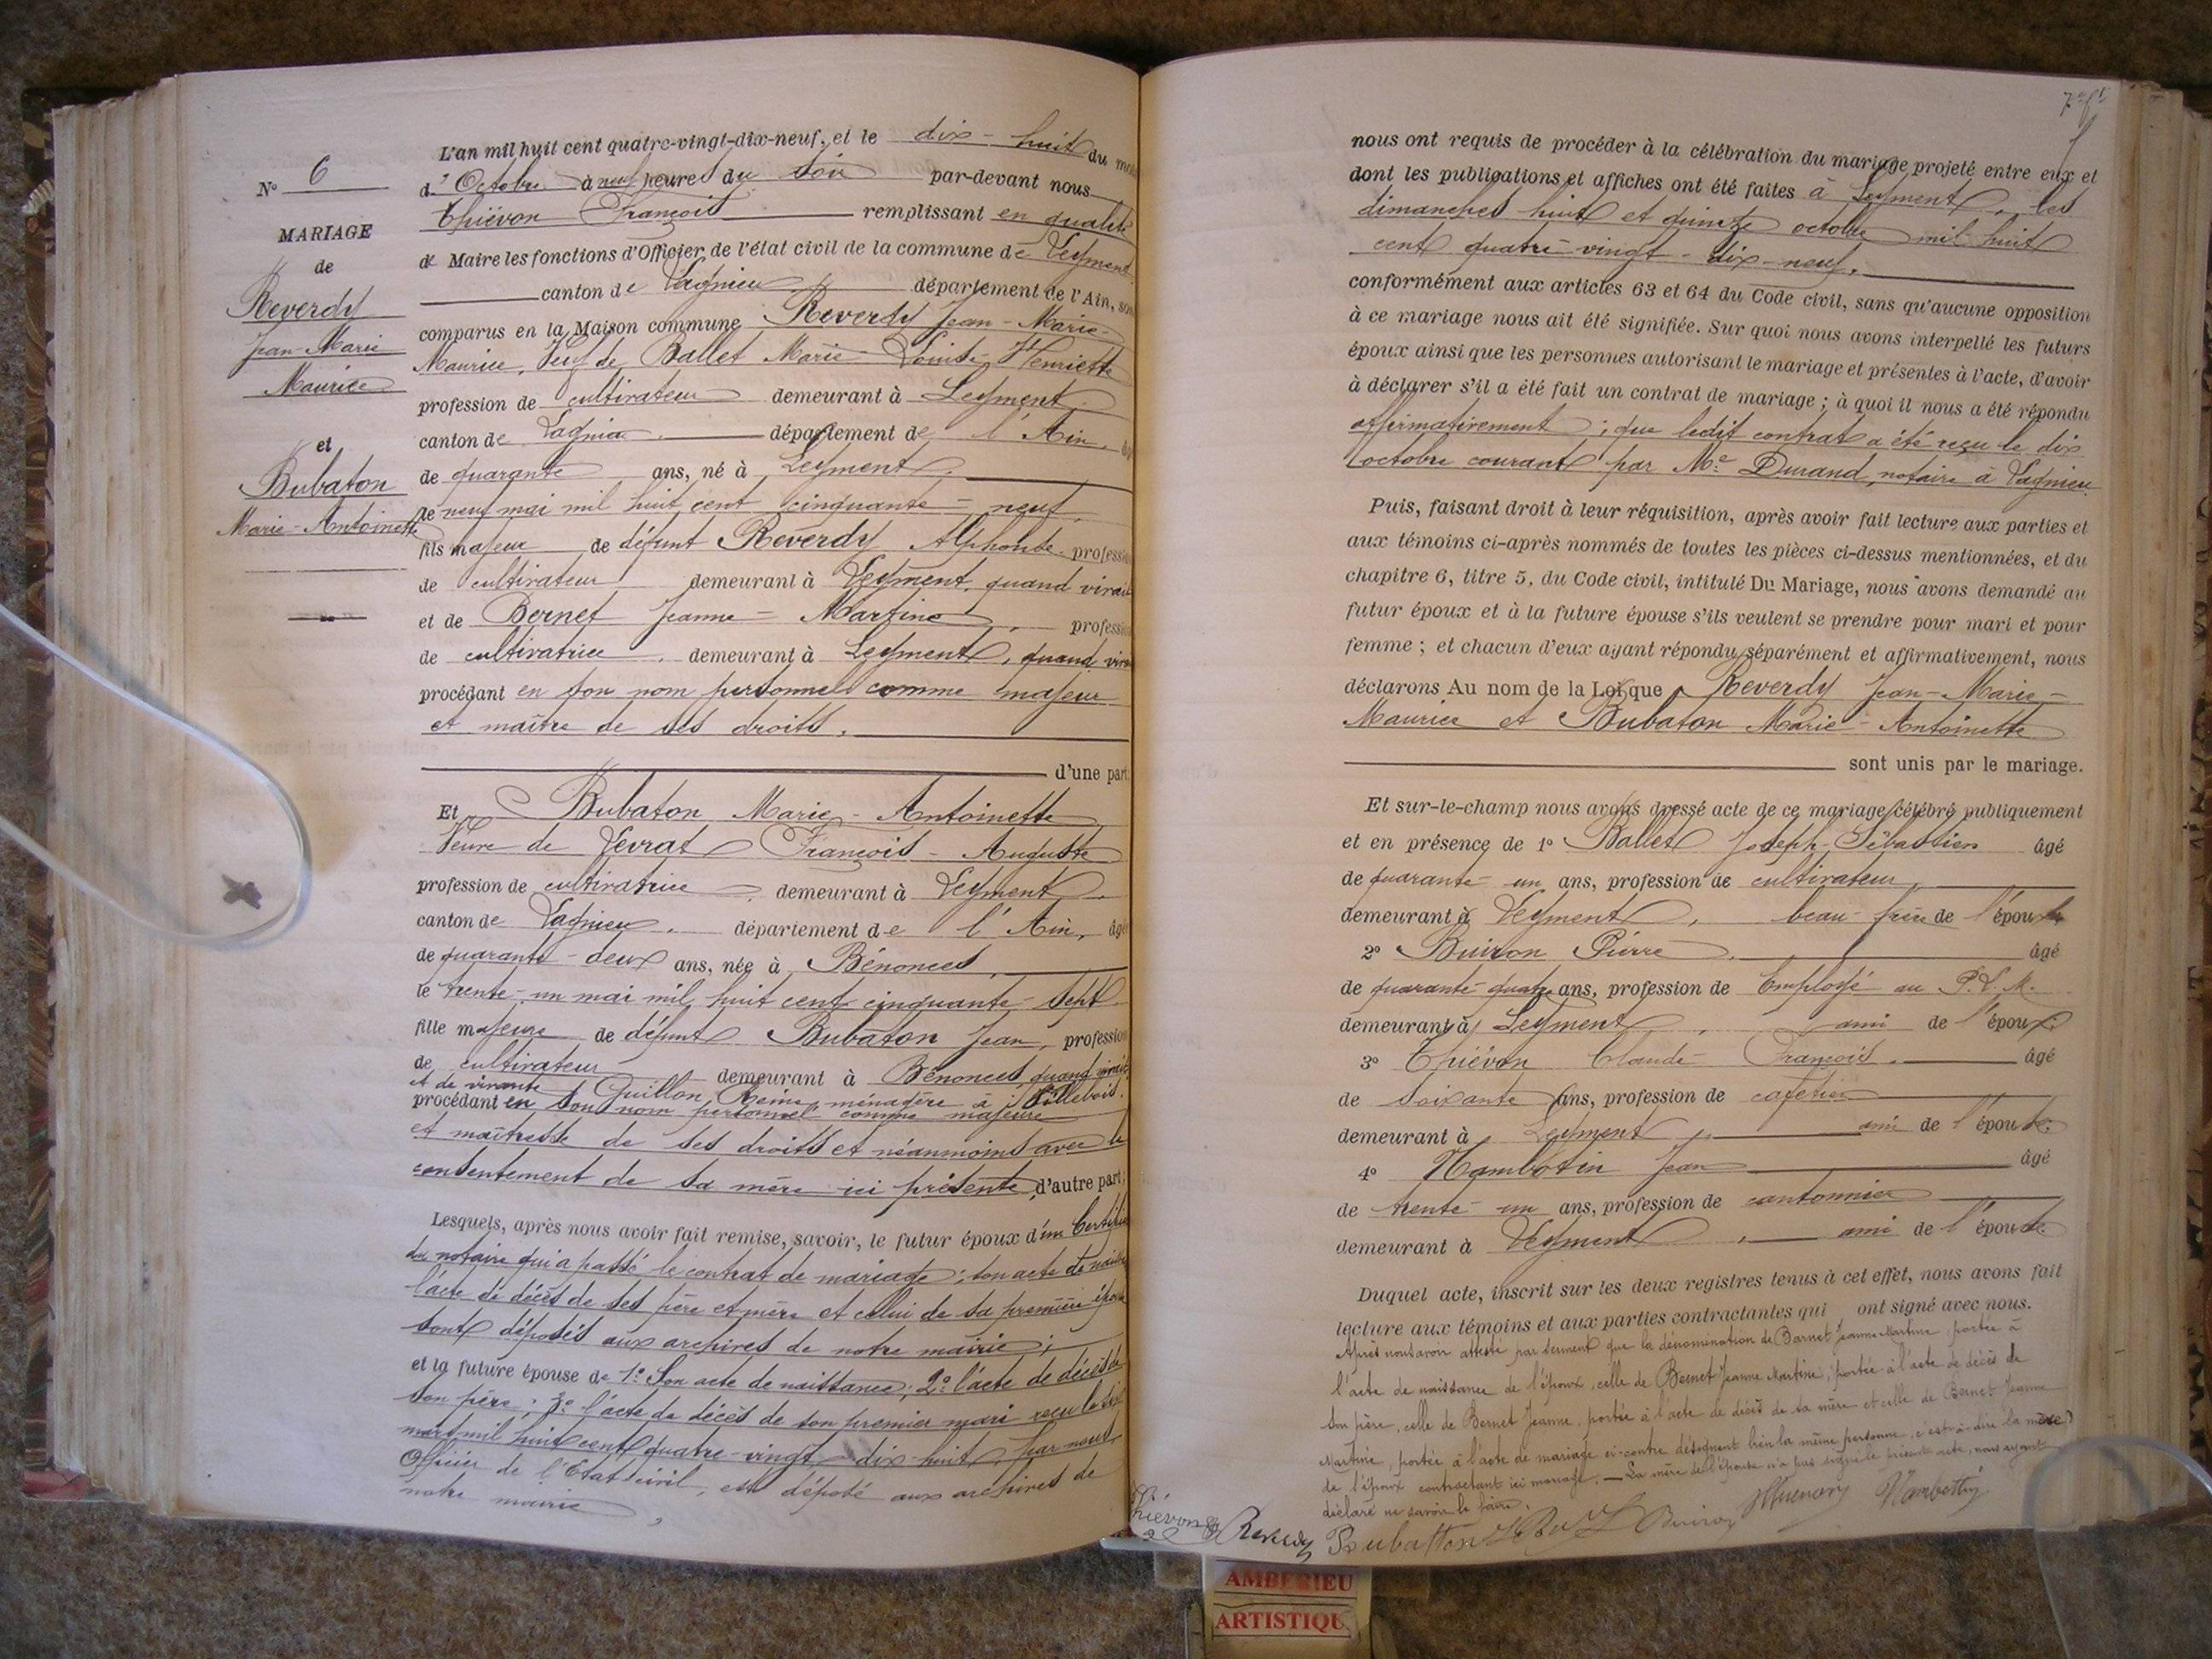 N° 6
MARIAGE
de
Reverdy
Jean-Marie
Maurice
et
Bubaton
Marie-Antoinette
L'an mil huit cent quatre-vingt-dix-neuf, et le dix-huit du mois
d' Octobre à neuf heures du soir par-devant nous
Thiévon François remplissant en qualité
de Maire les fonctions d'Officier de l'état civil de la commune de Leyment
canton de Lagnieu département de l'Ain, sont
comparus en la Maison commune Reverdy Jean-Marie-
Maurice, Veuf de Ballet Marie Louise Henriette
profession de cultivateur demeurant à Leyment
canton de Lagnieu département de l'Ain, âgé
de quarante ans, né à Leyment,
le neuf mai mil huit cent cinquante-neuf,
fils majeur de défunt Reverdy Alphonse profession
de cultivateur demeurant à Leyment, quand vivait
et de Bernet Jeanne-Martine, profession
de cultivatrice, demeurant à Leyment, quand vivait
procédant en son nom personnel comme majeur
et maître de ses droits,
d'une part.
Et Bubaton Marie-Antoinette
Veuve de Levrat François-Auguste
profession de cultivatrice, demeurant à Leyment,
canton de Lagnieu, département de l'Ain, âgée
de quarante-deux ans, née à Bénonces,
le trente-un mai mil huit cent cinquante-sept
fille majeure de défunt Bubaton Jean, profession
de cultivateur demeurant à Bénonces, quand vivait
et de vivante Guillon Reine, ménagère à Villebois.
procédant en son nom personnel comme majeure
et maîtresse de ses droits et néanmoins avec le
consentement de sa mère ici présente, d'autre part;
Lesquels, après nous avoir fait remise, savoir, le futur époux d'un Certificat
du notaire qui a passé le contrat de mariage; son acte de naissance
l'acte de décès de ses père et mère et celui de sa première épouse
sont déposés aux archives de notre mairie;
et la future épouse de 1° Son acte de naissance; 2° l'acte de décès de
son père; 3° l'acte de décès de son premier mari reçu le six
mars mil huit cent quatre-vingt-dix-huit, par nous
Officier de l'Etat civil, est déposé aux archives de
notre mairie,
nous ont requis de procéder à la célébration du mariage projeté entre eux et
dont les publications et affiches ont été faites à Leyment, les
dimanches huit et quinze octobre mil huit
cent quatre-vingt-dix-neuf,
conformément aux articles 63 et 64 du Code civil, sans qu'aucune opposition
à ce mariage nous ait été signifiée. Sur quoi nous avons interpellé les futurs
époux ainsi que les personnes autorisant le mariage et présentes à l'acte, d'avoir
à déclarer s'il a été fait un contrat de mariage; à quoi il nous a été répondu
affirmativement; que ledit contrat a été reçu le dix
octobre courant par Me Durand, notaire à Lagnieu.
Puis, faisant droit à leur réquisition, après avoir fait lecture aux parties et
aux témoins ci-après nommés de toutes les pièces ci-dessus mentionnées, et du
chapitre 6, titre 5, du Code civil, intitulé Du Mariage, nous avons demandé au
futur époux et à la future épouse s'ils veulent se prendre pour mari et pour
femme; et chacun d'eux ayant répondu séparément et affirmativement, nous
déclarons Au nom de la Loi que Reverdy Jean-Marie-
Maurice et Bubaton Marie-Antoinette
sont unis par le mariage.
Et sur-le-champ nous avons dressé acte de ce mariage célébré publiquement
et en présence de 1° Ballet Joseph-Sébastien âgé
de quarante-un ans, profession de cultivateur,
demeurant à Leyment, beau-frère de l'époux
2° Buiron Pierre, âgé
de quarante-quatre ans, profession de Employé au P.L.M.
demeurant à Leyment, ami de l'époux;
3° Thiévon Claude François, âgé
de soixante ans, profession de cafetier
demeurant à Leyment, ami de l'épouse;
4° Nambotin Jean âgé
de trente-un ans, profession de cantonnier
demeurant à Leyment, ami de l'épouse
Duquel acte, inscrit sur les deux registres tenus à cet effet, nous avons fait
lecture aux témoins et aux parties contractantes qui ont signé avec nous.
Après nous avoir attesté par serment que la dénomination de Barnet Jeanne Martine portée à
l'acte de naissance de l'époux, celle de Bernet Jeanne Martine, portée à l'acte de décès de
son père, celle de Bernet Jeanne, portée à l'acte de décès de sa mère et celle de Bernet Jeanne
Martine, portée à l'acte de mariage ci-contre désignent bien la même personne, c'est-à-dire la mère
de l'époux contractant ici mariage. — La mère de l'épouse n'a pas signé le présent acte, nous ayant
déclaré ne savoir le faire.
Thiévon Reverdy Bubatton Buiron Nambottin
AMBERIEU
ARTISTIQU